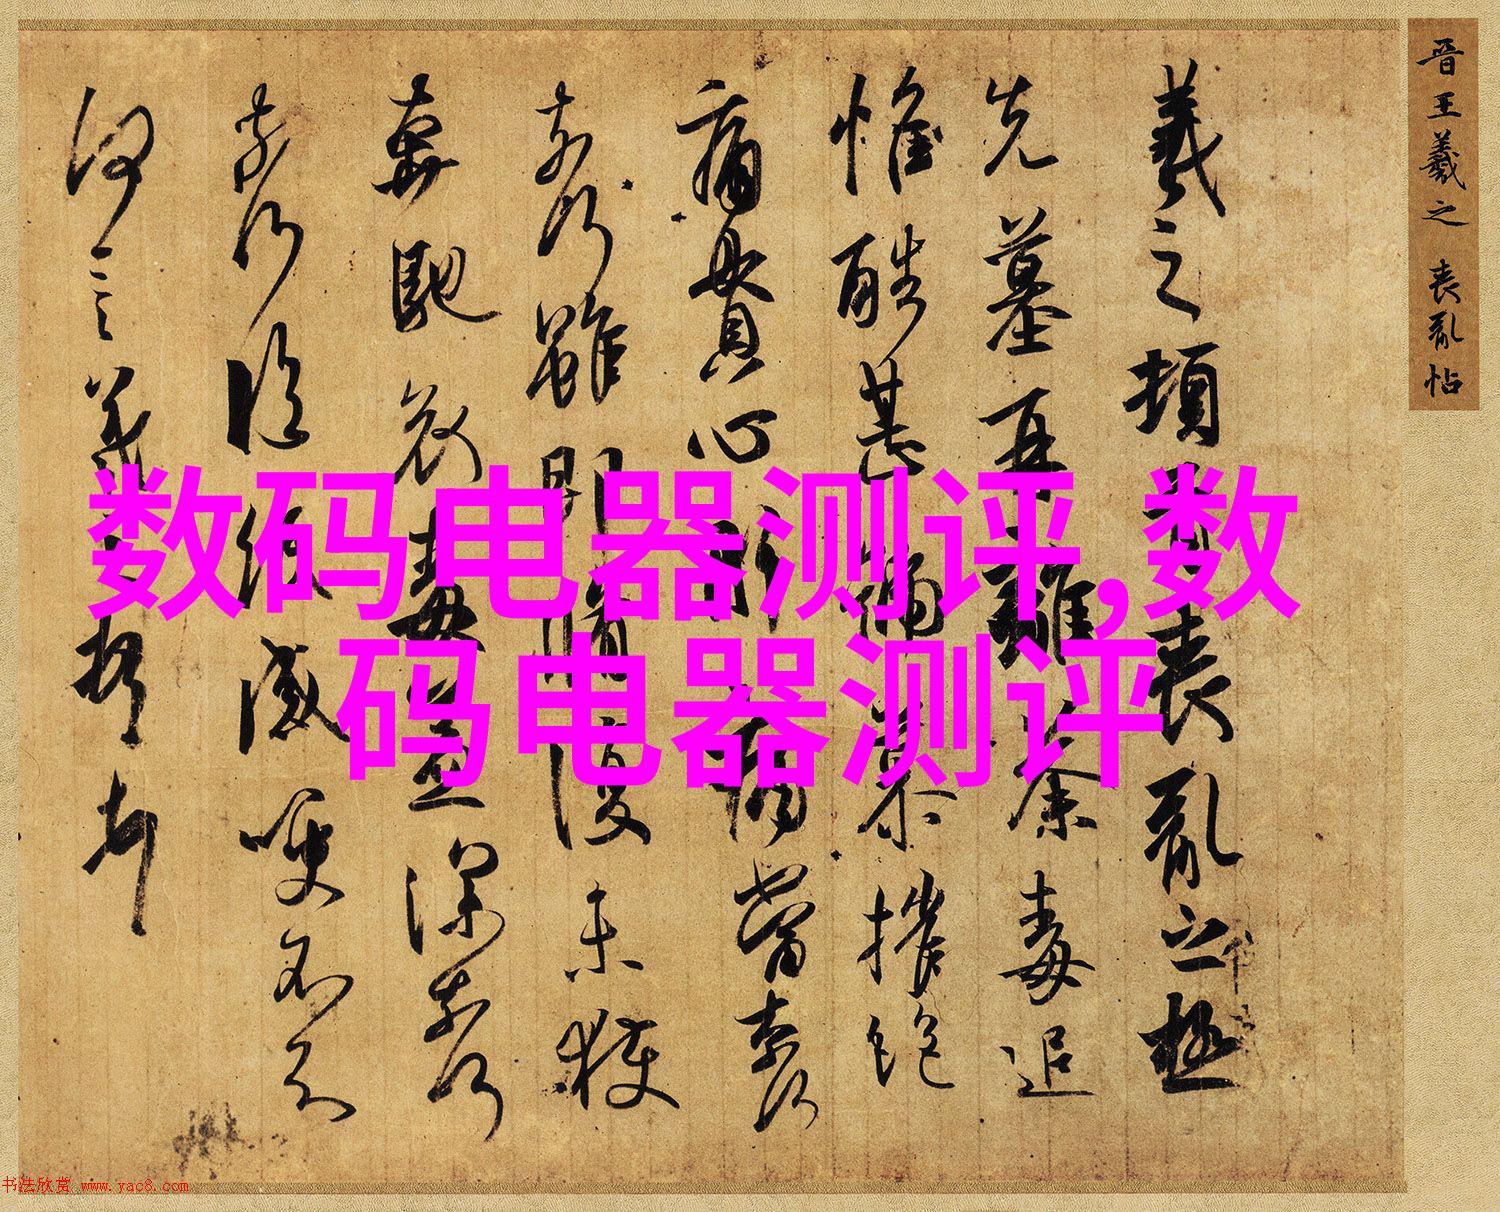 晋王羲之 丧乱帖
羲之頓首丧亂之極
先墓再離荼毒追
惟酷甚號慕摧絶
痛貫心肝痛當奈何
奈何雖即脩復未獲
奔馳哀毒益深奈何
奈何臨紙感哽不知
何言羲之頓首頓首
数码电器测评,数
码电器测评
书法欣赏 www.yac8.com